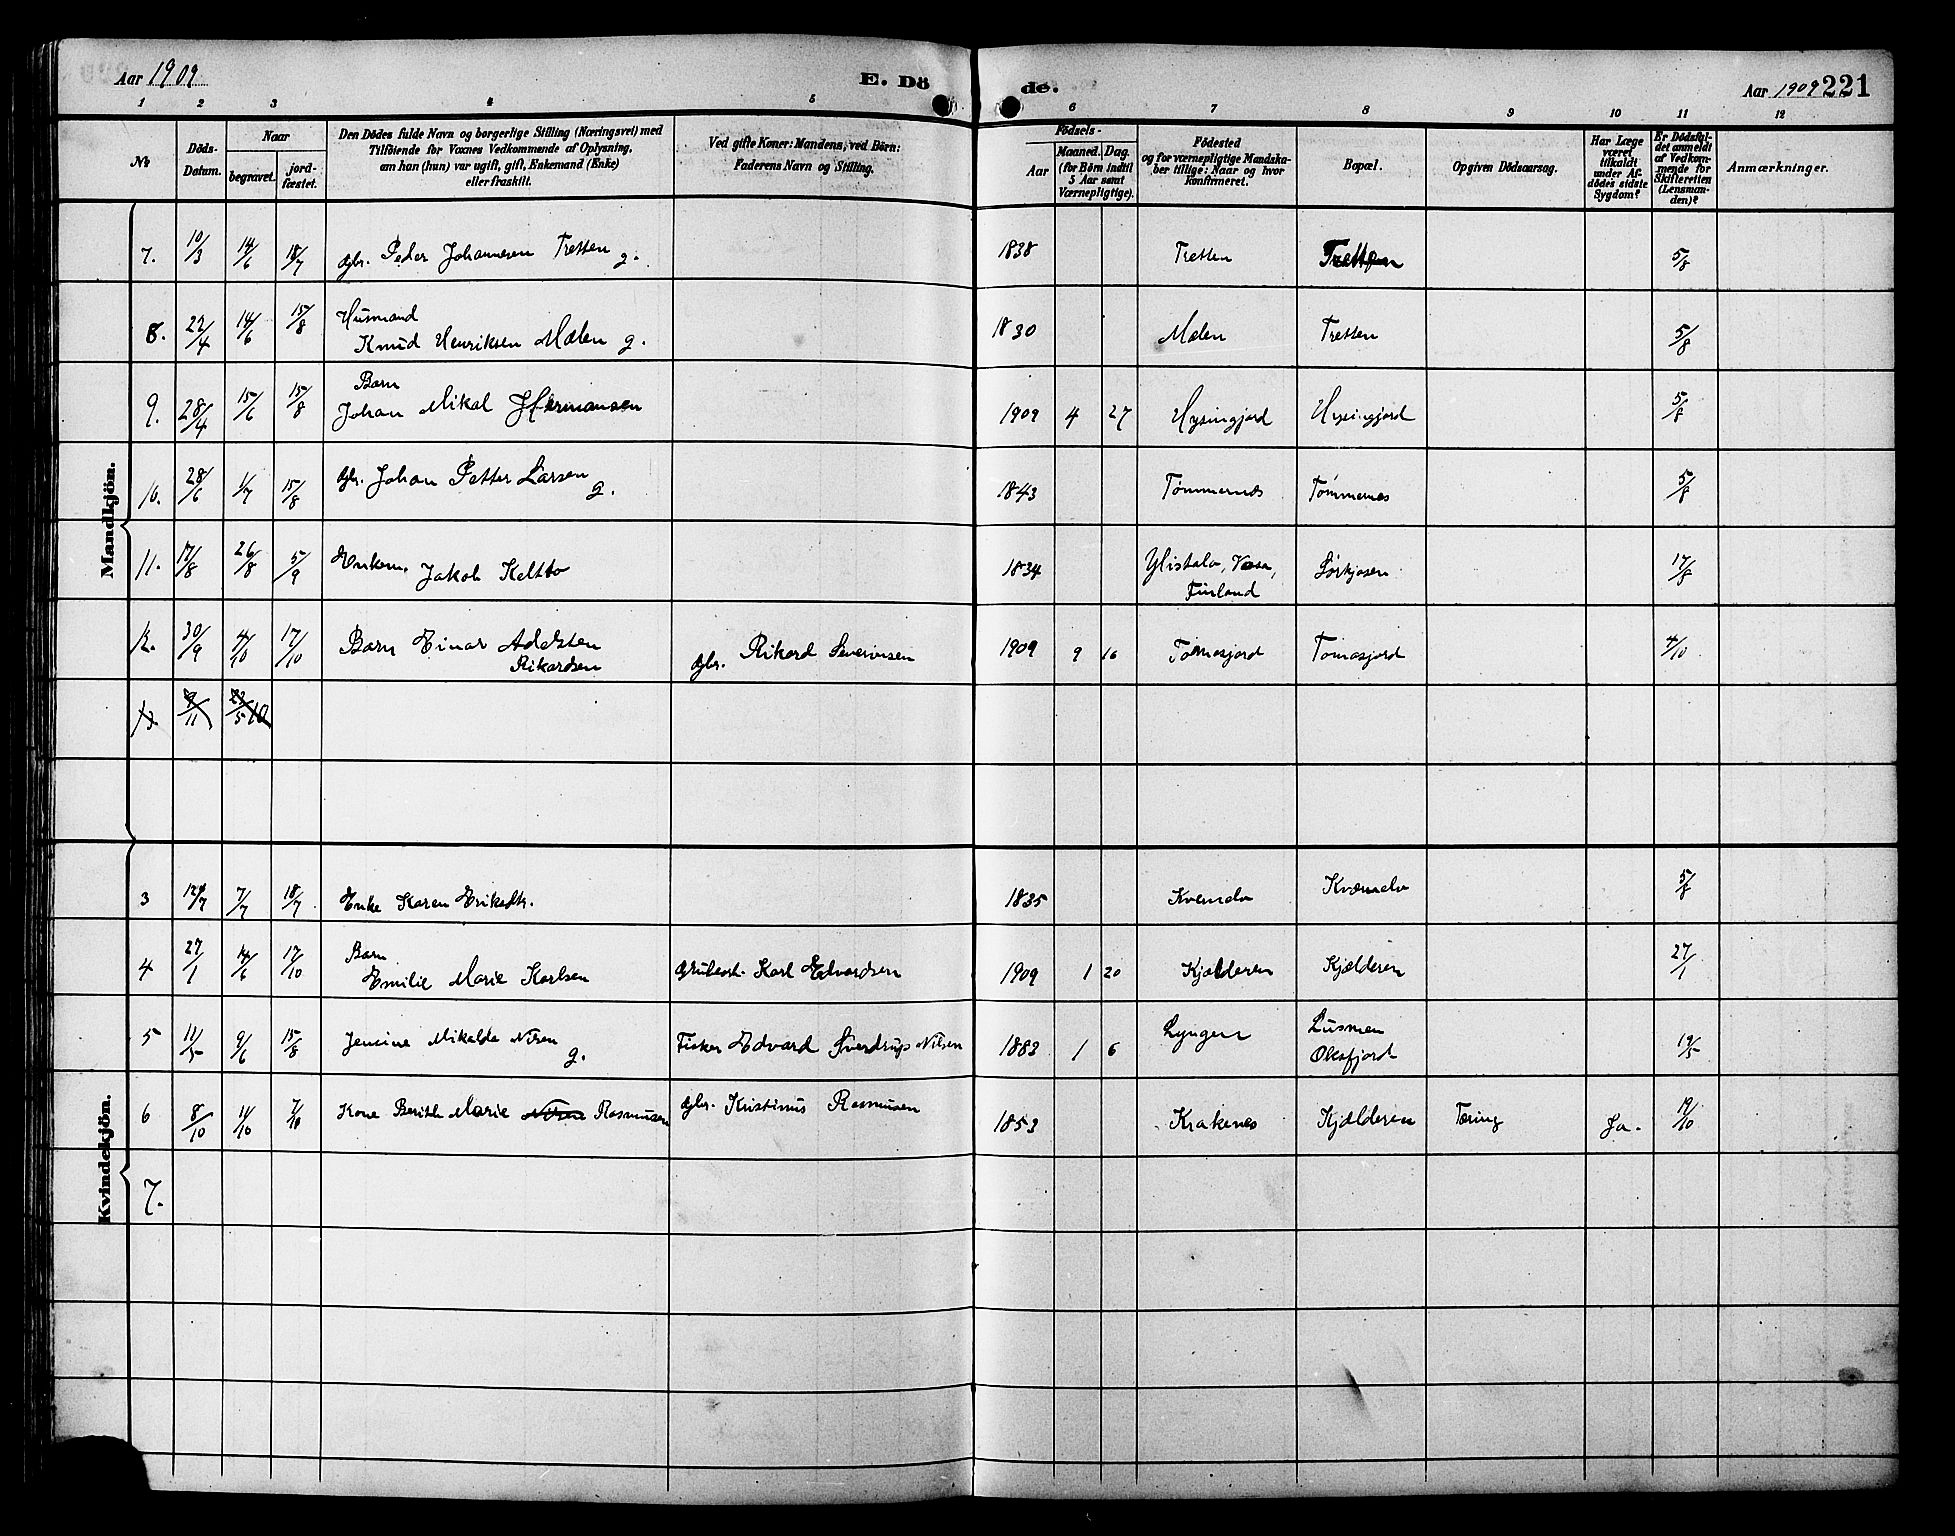 Aar 1909
E. Dö
de.
Aar 1909 221
1 2 3 4 5 6 7 8 9 10 11 12
No
Döds-
Datum.
Naar
begravet.
jord-
fæstet.
Den Dödes fulde Navn og borgerlige Stilling (Næringsvei) med
Tilföiende for Voxnes Vedkommende af Oplysning,
om han (hun) var ugift, gift, Enkemand (Enke)
eller fraskilt.
Ved gifte Koner: Mandens, ved Börn:
Faderens Navn og Stilling.
Födsels-
Aar
Maaned. Dag.
(for Börn indtil
5 Aar samt
Værnepligtige).
Födested
og for værnepligtige Mandska-
ber tillige: Naar og hvor
konfirmeret.
Bopæl.
Opgiven Dödsaarsag.
Har Læge
været
tilkaldt
under Af-
dödes sidste
Sygdom?
Er Dödsfal-
det anmeldt
af Vedkom-
mende for
Skifteretten
(Lensman-
den)?
Anmærkninger.
Mandkjön.
7. 10/3 14/6 18/7 gbr. Peder Johannesen Tretten g. 1838 Tretten Tretten 5/8
8. 22/4 14/6 15/8 Husmand
Knud Henriksen Mælen g. 1830 Mælen Tretten 5/8
9. 28/4 15/6 15/8 Barn
Johan Mikal Hermansen 1909 4 27 Hysingjord Hysingjord 5/8
10. 28/6 1/7 15/8 gbr. Johan Petter Larsen g. 1843 Tømmernes Tømmernes 5/8
11. 17/8 26/8 5/9 Enkem. Jakob Keltto 1834 Ylistalo, Vasa, Finland Sørkjosen 17/8
12. 30/9 4/10 17/10 Barn Einar Adelsten
Rikardsen gbr. Rikard Severinsen 1909 9 16 Tomasjord Tomasjord 4/10
13 /11
Kvindekjön.
3 7/7 18/7 Enke Karen Eriksdtr. 1835 Kvændo 5/8
4 27/1 14/6 17/10 Barn
Emilie Marie Karlsen Karl Edvardsen 1909 1 20 Kjælderen Kjælderen 27/1
5 11/5 9/6 15/8 Jensine Mikalda Nilsen g. Fisker Edvard Sverdrup Nilsen 1883 1 6 Lyngen
Oksfjord 19/5
6 8/10 11/10 7/10 Kone Berith Marie Nilsen Rasmussen gbr. Kristinus Rasmussen 1853 Krakenes Kjælderen Tæring Ja. 19/10
7.